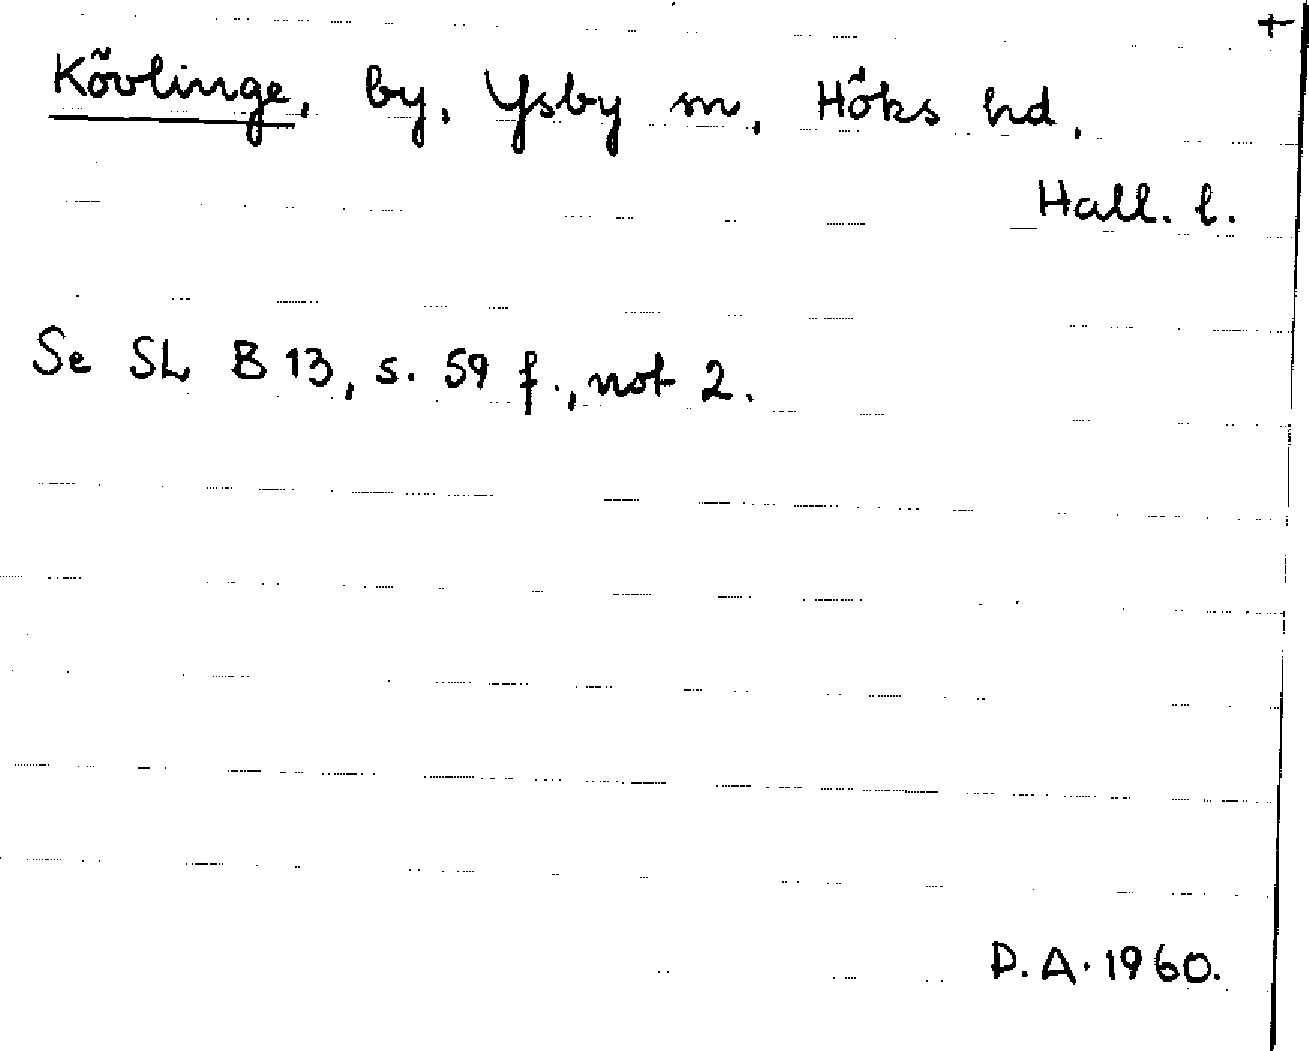 +
Kövlinge, by, Ysby sn, Höks hd,
Hall. l.
Se SL B 13, s. 59 f., not 2.
D.A. 1960.